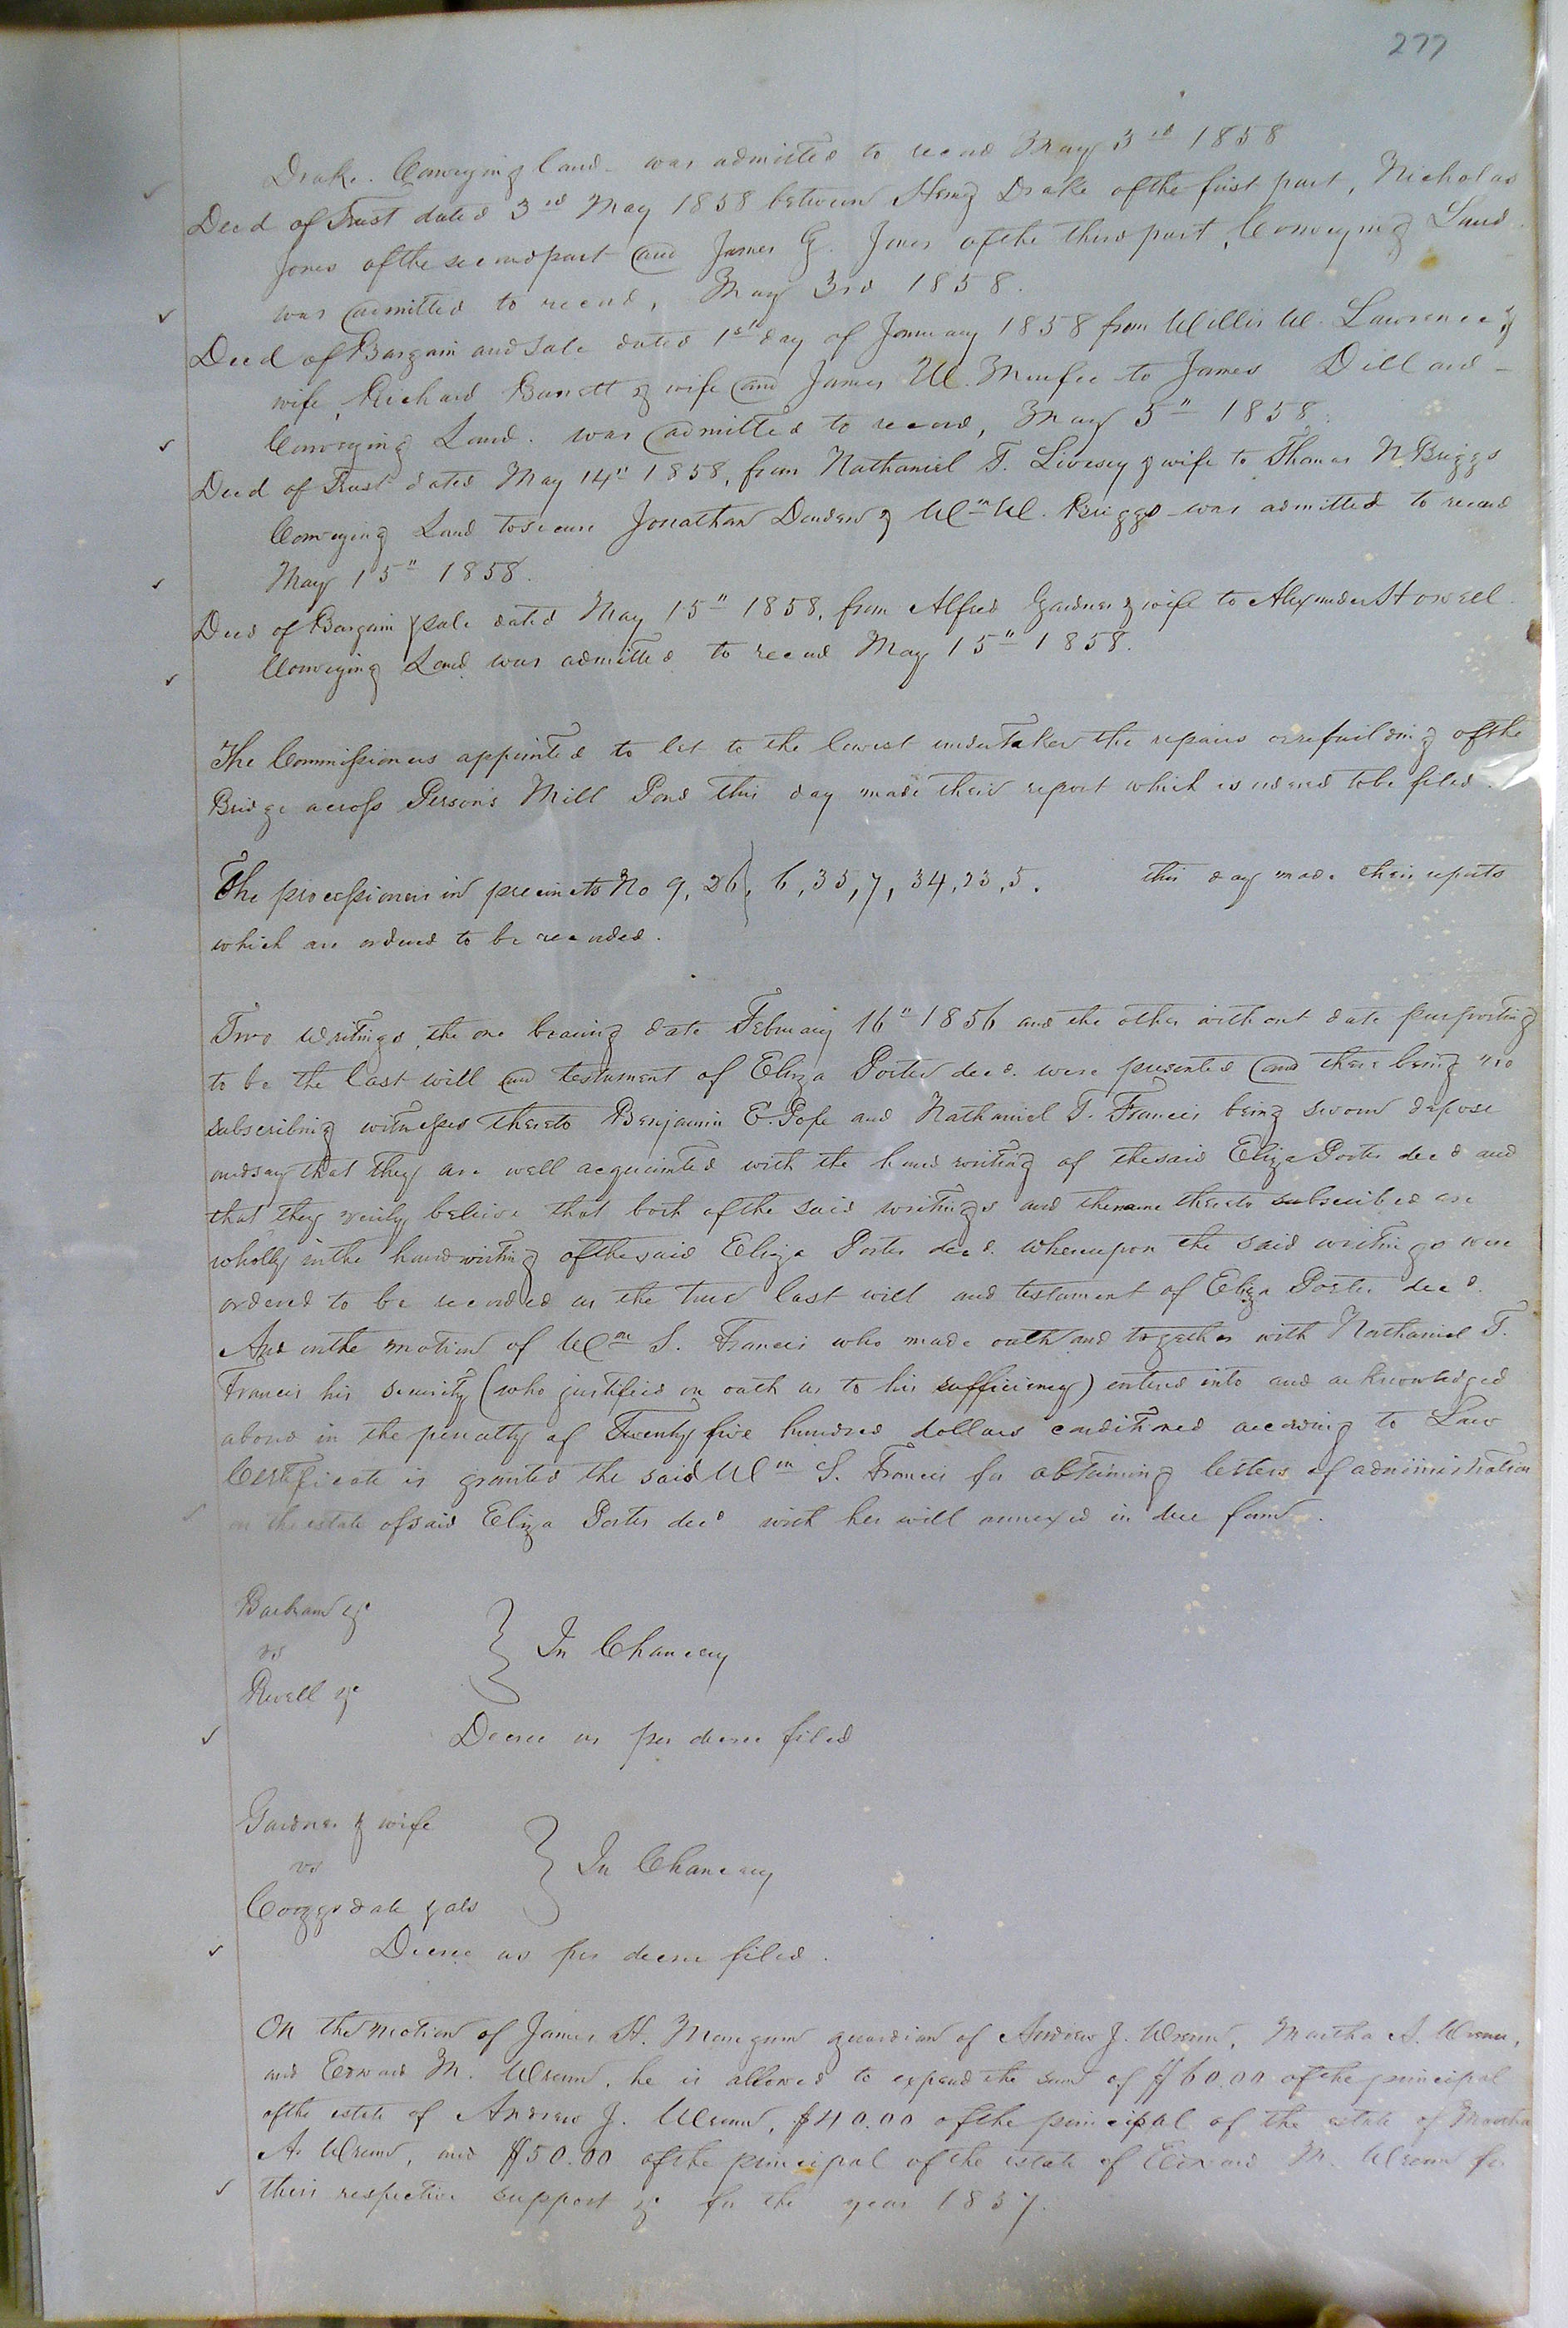 277
Drake. Conveying land was admitted to record May 3rd 1858
Deed of Trust dated 3rd May 1858 between Henry Drake of the first part, Nicholas
Jones of the second part and James G. Jones of the third part, Conveying Land
was admitted to record, May 3rd 1858.
Deed of Bargain and Sale dated 1st day of January 1858 from Willis W. Lawrence &
wife, Richard Barrett & wife and James W. Murfee to James Dillard
Conveying Land. was admitted to record, May 5" 1858.
Deed of Trust dated May 14" 1858, from Nathaniel T. Livesey & wife to Thomas N Briggs
Conveying Land to secure Jonathan Darden & Wm W. Briggs was admitted to record
May 15" 1858.
Deed of Bargain & sale dated May 15" 1858, from Alfred Gardner & wife to Alexander Howell
Conveying Land was admitted to record May 15" 1858.
The Commissioners appointed to let to the lowest undertaker the repairs or rebuilding of the
Bridge across Person's Mill Pond this day made their report which is ordered to be filed.
The processioners in precincts No 9, 26, 6, 35, 7, 34, 23, 5. this day made their reports
which are ordered to be recorded.
Two Writings, the one bearing date February 16" 1856 and the other without date purporting
to be the last will and testament of Eliza Porter decd. were presented and there being no
subscribing witnesses thereto Benjamin E. Pope and Nathaniel T. Francis being sworn depose
and say that they are well acquainted with the hand writing of the said Eliza Porter decd and
that they verily believe that both of the said writings and the name thereto subscribed are
wholly in the handwriting of the said Eliza Porter decd. whereupon the said writings were
ordered to be recorded as the true last will and testament of Eliza Porter decd.
And on the motion of Wm S. Francis who made oath and together with Nathaniel T.
Francis his security (who justified on oath as to his sufficiency) entered into and acknowledged
a bond in the penalty of Twenty five hundred dollars conditioned according to Law
Certificate is granted the said Wm S. Francis for obtaining letters of administration
on the estate of said Eliza Porter decd with her will annexed in due form.
Barham &c
vs
Rivell &c
} In Chancery
Decree as per decree filed
Gardner & wife
vs
Coggsdale & als
} In Chancery
Decree as per decree filed.
On the motion of James H. Manguin guardian of Andrew J. Wrenn, Martha A. Wrenn,
and Edward M. Wrenn, he is allowed to expend the sum of $60.00 of the principal
of the estate of Andrew J. Wrenn, $40.00 of the principal of the estate of Martha
A. Wrenn, and $50.00 of the principal of the estate of Edward M. Wrenn for
their respective support &c for the year 1857.